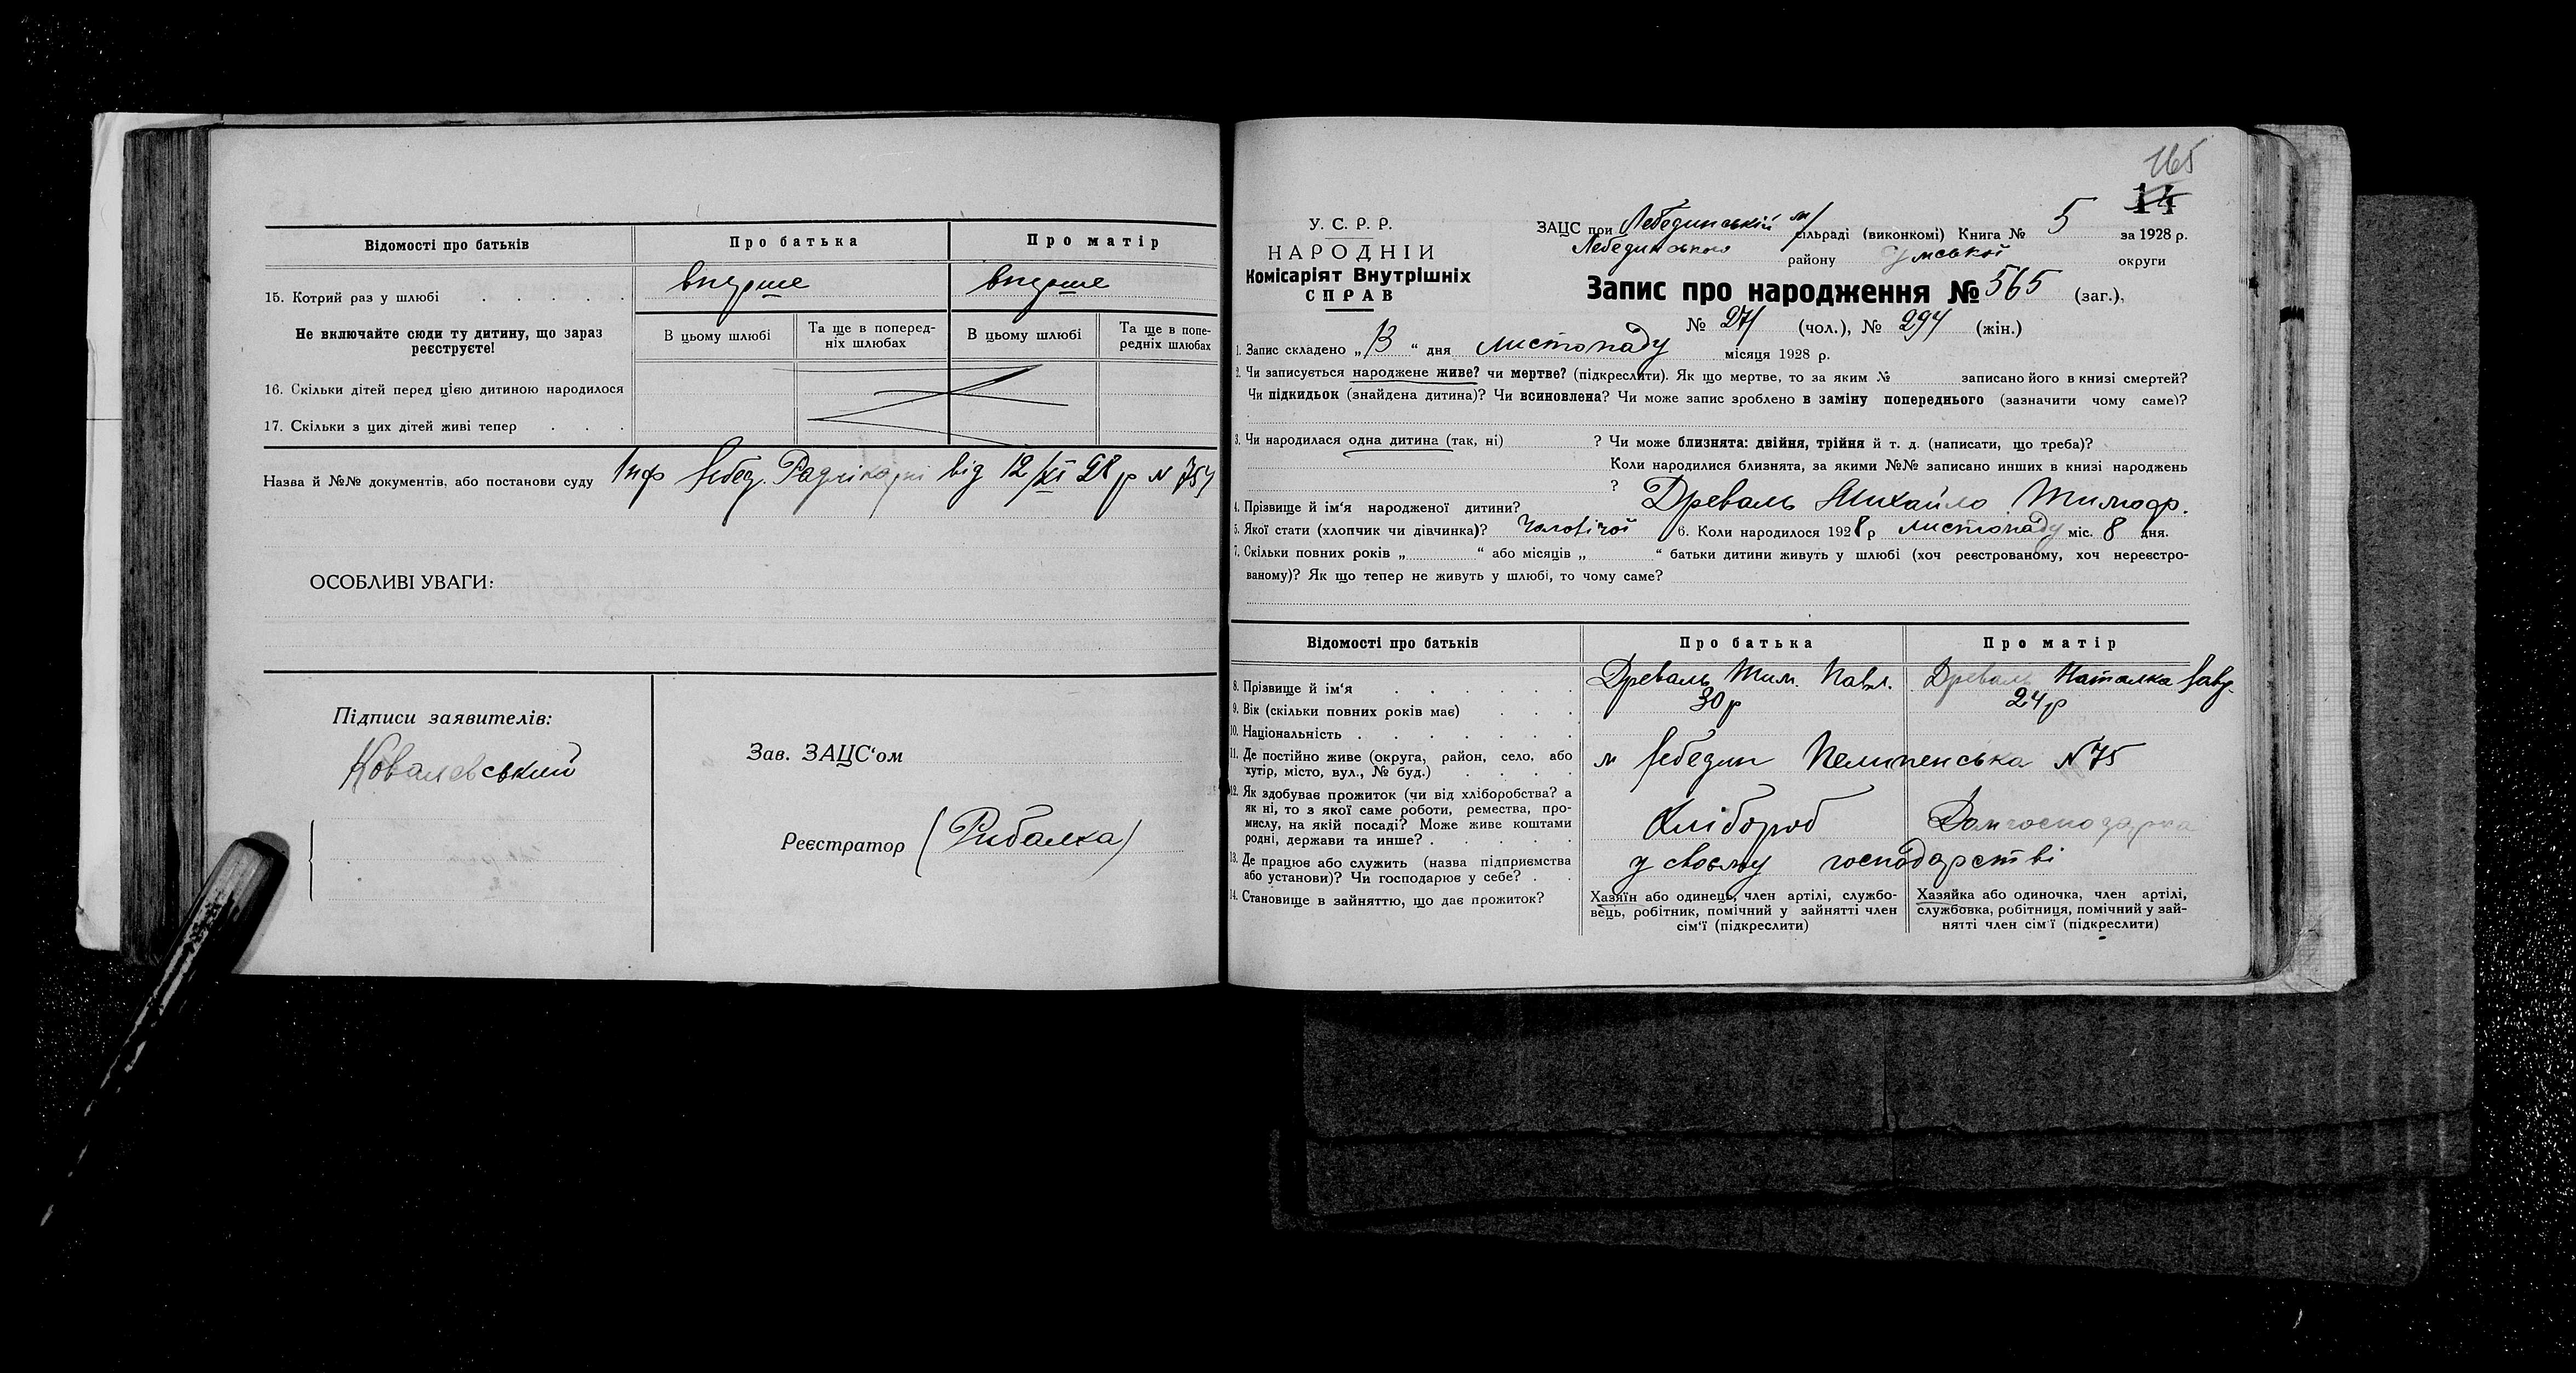 Відомості про батьків
Про батька
Про матір
15. Котрий раз у шлюбі
вперше
вперше
Не включайте сюди ту дитину, що зараз
реєструєте!
В цьому шлюбі
Та ще в поперед-
ніх шлюбах
В цьому шлюбі
Та ще в попе-
редніх шлюбах
16. Скільки дітей перед цією дитиною народилося
17. Скільки з цих дітей живі тепер
Назва й №№ документів, або постанови суду Лебед. Радлікарні від 12/XI 28 р N 754
ОСОБЛИВІ УВАГИ:
Підписи заявителів:
Ковалевський
Зав. ЗАЦС‘ом
Реєстратор (Рибалка)
165
14
У. С. Р. Р.
НАРОДНІЙ
Комісаріят Внутрішніх
СПРАВ
ЗАЦС при Лебединській м/ сільраді (виконкомі) Книга № 5 за 1928 р.
Лебединського району Сумської округи
Запис про народження № 565 (заг.),
№ 271 (чол.), № 294 (жін.)
1. Запис складено „ 13 “ дня листопаду місяця 1928 р.
2. Чи записується народжене живе? чи мертве? (підкреслити). Як що мертве, то за яким № записано його в книзі смертей?
Чи підкидьок (знайдена дитина)? Чи всиновлена? Чи може запис зроблено в заміну попереднього (зазначити чому саме)?
3. Чи народилася одна дитина (так, ні) ? Чи може близнята: двійня, трійня й т. д. (написати, що треба)?
Коли народилися близнята, за якими №№ записано инших в книзі народжень
?
4. Прізвище й ім‘я народженої дитини? Древаль Михайло Тимофр.
5. Якої стати (хлопчик чи дівчинка)? Чоловічої 6. Коли народилося 1928 р листопаду міс. 8 дня.
7. Скільки повних років „ “ або місяців „ “ батьки дитини живуть у шлюбі (хоч реєстрованому, хоч нереєстро-
ваному)? Як що тепер не живуть у шлюбі, то чому саме?
Відомості про батьків
Про батька
Про матір
8. Прізвище й ім‘я
Древаль Тим. Павл.
Древаль Наталка
9. Вік (скільки повних років має)
30 р
24 р
10. Національність
11. Де постійно живе (округа, район, село, або
хутір, місто, вул., № буд.)
м Лебедин Пелипенська N 75
12. Як здобуває прожиток (чи від хліборобства? а
як ні, то з якої саме роботи, ремества, про-
мислу, на якій посаді? Може живе коштами
родні, держави та инше?
Хлібороб
Домгосподарка
13. Де працює або служить (назва підприємства
або установи)? Чи господарює у себе?
у своєму господарстві
14. Становище в зайняттю, що дає прожиток?
Хазяїн або одинець, член артілі, службо-
вець, робітник, помічний у зайнятті член
сім‘ї (підкреслити)
Хазяйка або одиночка, член артілі,
службовка, робітниця, помічний у зай-
нятті член сім‘ї (підкреслити)